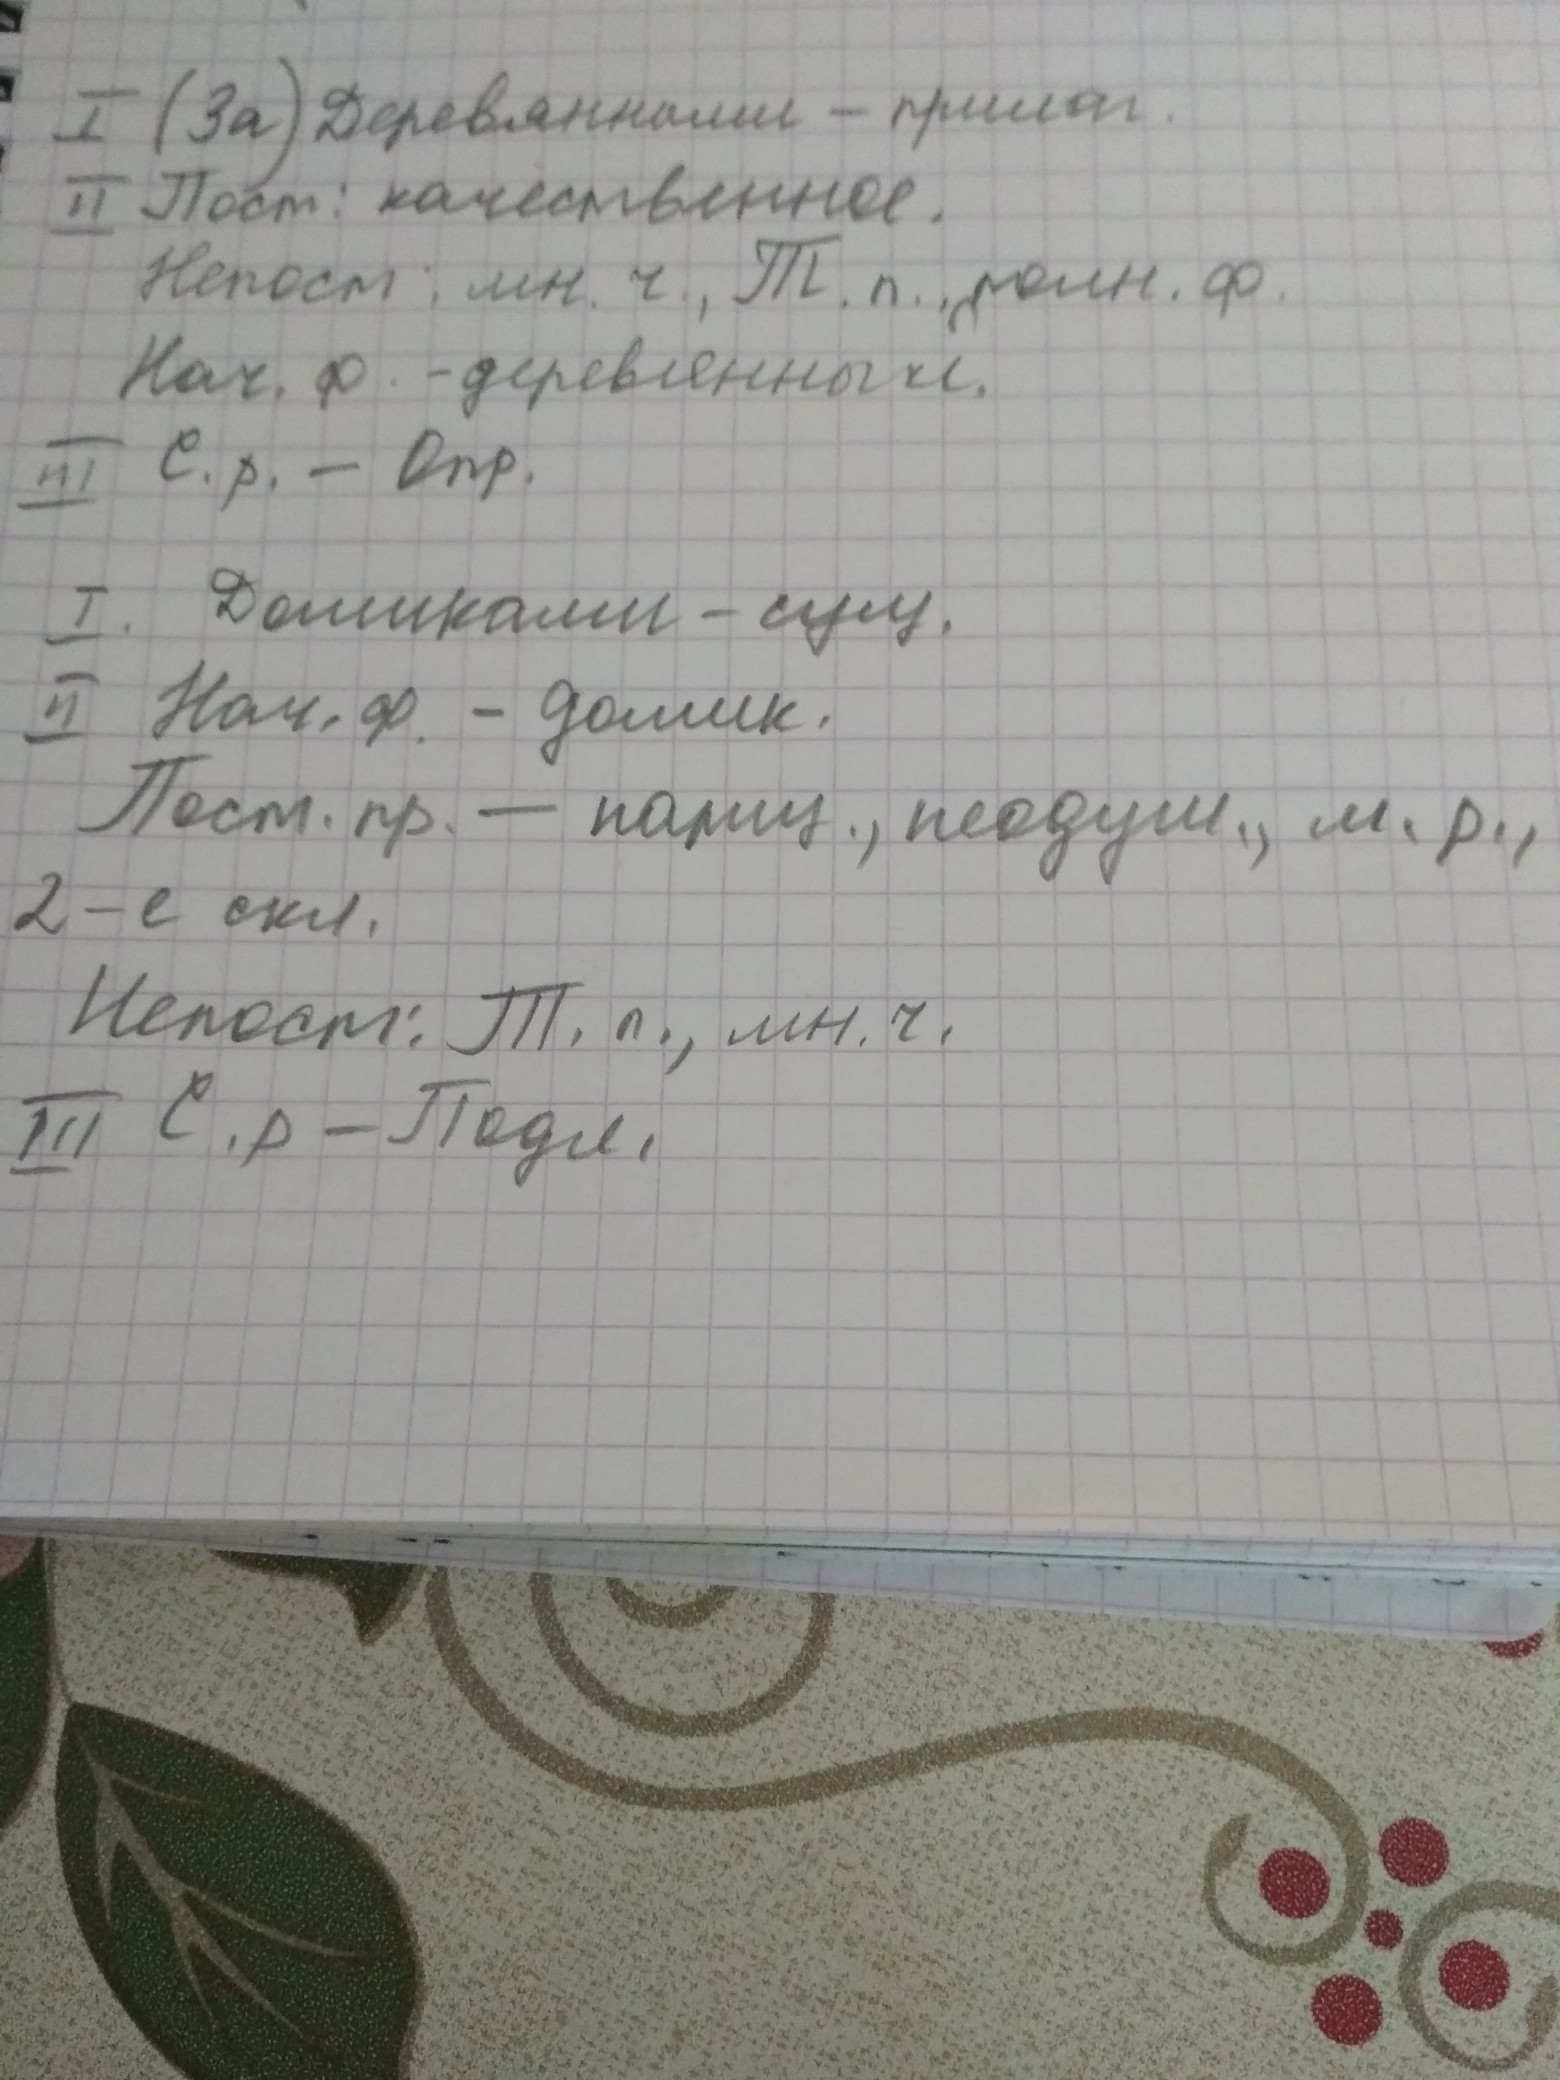 I (За) Деревянными – прилаг.
II Пост: качественное.
Непост: мн. ч., Т. п., полн. ф.
Нач. ф. - деревленных.
III С. р. – Опр.
I. Домиками – сущ.
II Нач. ф. – домик.
Пост. пр. — нариц., неодуш., м. р.,
2-е скл.
Непост: Т. п., мн. ч.
III С. р – Подл.